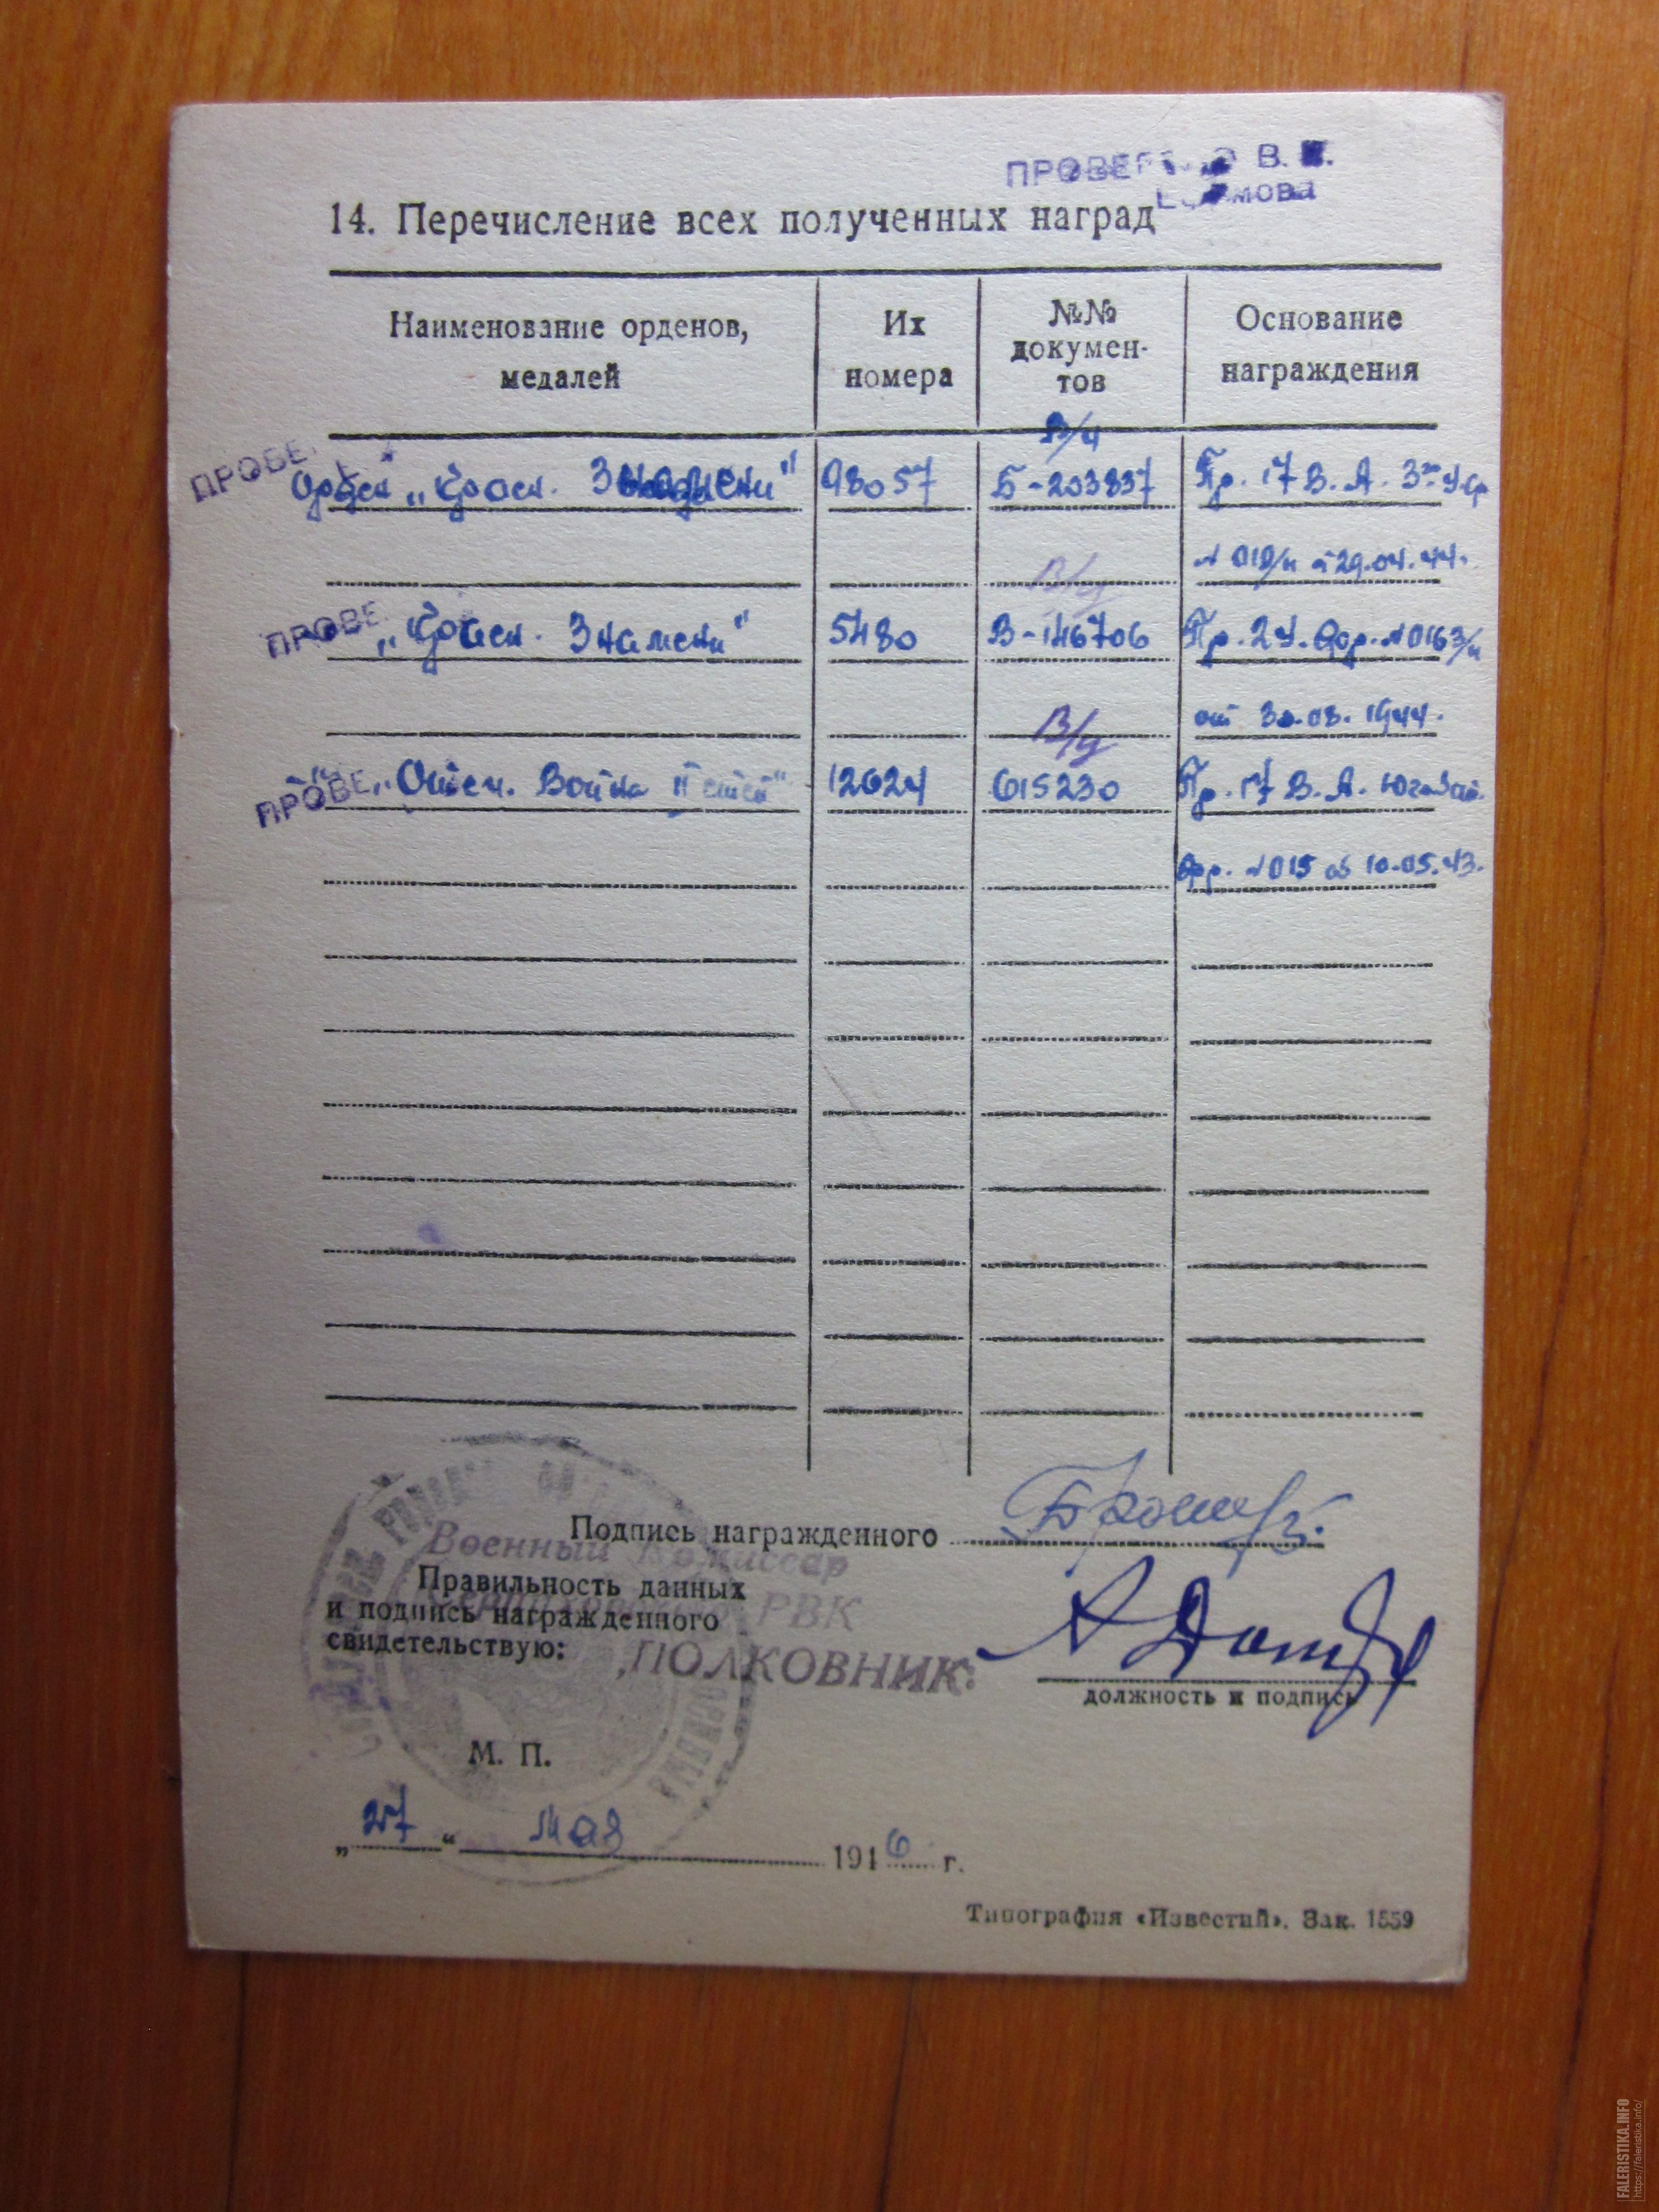 ПРОВЕРЕНО В.
14. Перечисление всех полученных наград
Наименование орденов, медалей
Их номера
№№ докумен-тов
Основание награждения
В/ч
ПРОВЕ
Орден „Красн. Знамени" 98057 Б-203837 Пр. 17 В. А. 3го У.Ф
№ 019/н 29.04.44.
В/ч
ПРОВЕ
„Красн. Знамени" 5480 В-146706 Пр. 2 У. Фр. №0163/н
от 30.08.1944.
В/ч
ПРОВЕ
„Отеч. Война II 12624 615230 Пр. 17 В. А. Югозап.
Фр. №015 об 10.05.43.
Подпись награжденного
Военный Комиссар
РВК
ПОЛКОВНИК:
Правильность данных
и подпись награжденного
свидетельствую:
должность и подпись
М. П.
„27" мая 1946 г.
Типография «Известий». Зак. 1559
FALERISTIKA.INFO
https://faleristika.info/